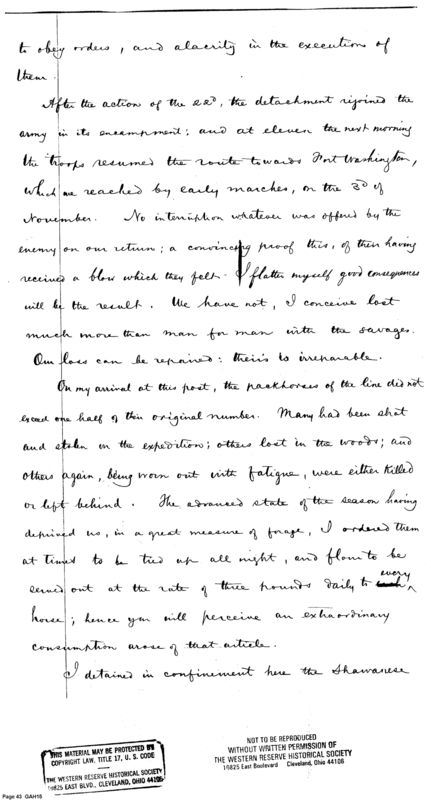 to obey orders, and alacrity in the execution of
them.
After the action of the 22d, the detachment rejoined the
army in its encampment; and at eleven the next morning
the troops resumed the route towards Fort Washington,
which we reached by early marches, on the 3d of
November. No interruption whatever was offered by the
enemy on our return; a convincing proof this, of their having
received a blow which they felt. I flatter myself good consequences
will be the result. We have not, I conceive lost
much more than man for man with the savages.
Our loss can be repaired: theirs is irreparable.
On my arrival at this post, the packhorses of the line did not
exceed one half of their original number. Many had been shot
and stolen on the expedition; others lost in the woods; and
others again, being worn out with fatigue, were either killed
or left behind. The advanced state of the season having
deprived us, in a great measure of forage, I ordered them
at times to be tied up all night, and flour to be
served out at the rate of three pounds daily to every
horse; hence you will perceive an extraordinary
consumption arose of that article.
I detained in confinement here the Shawanese
THIS MATERIAL MAY BE PROTECTED BY
COPYRIGHT LAW, TITLE 17, U. S. CODE
THE WESTERN RESERVE HISTORICAL SOCIETY
10825 EAST BLVD., CLEVELAND, OHIO 44106
NOT TO BE REPRODUCED
WITHOUT WRITTEN PERMISSION OF
THE WESTERN RESERVE HISTORICAL SOCIETY
10825 East Boulevard Cleveland, Ohio 44106
Page 43 GAH16